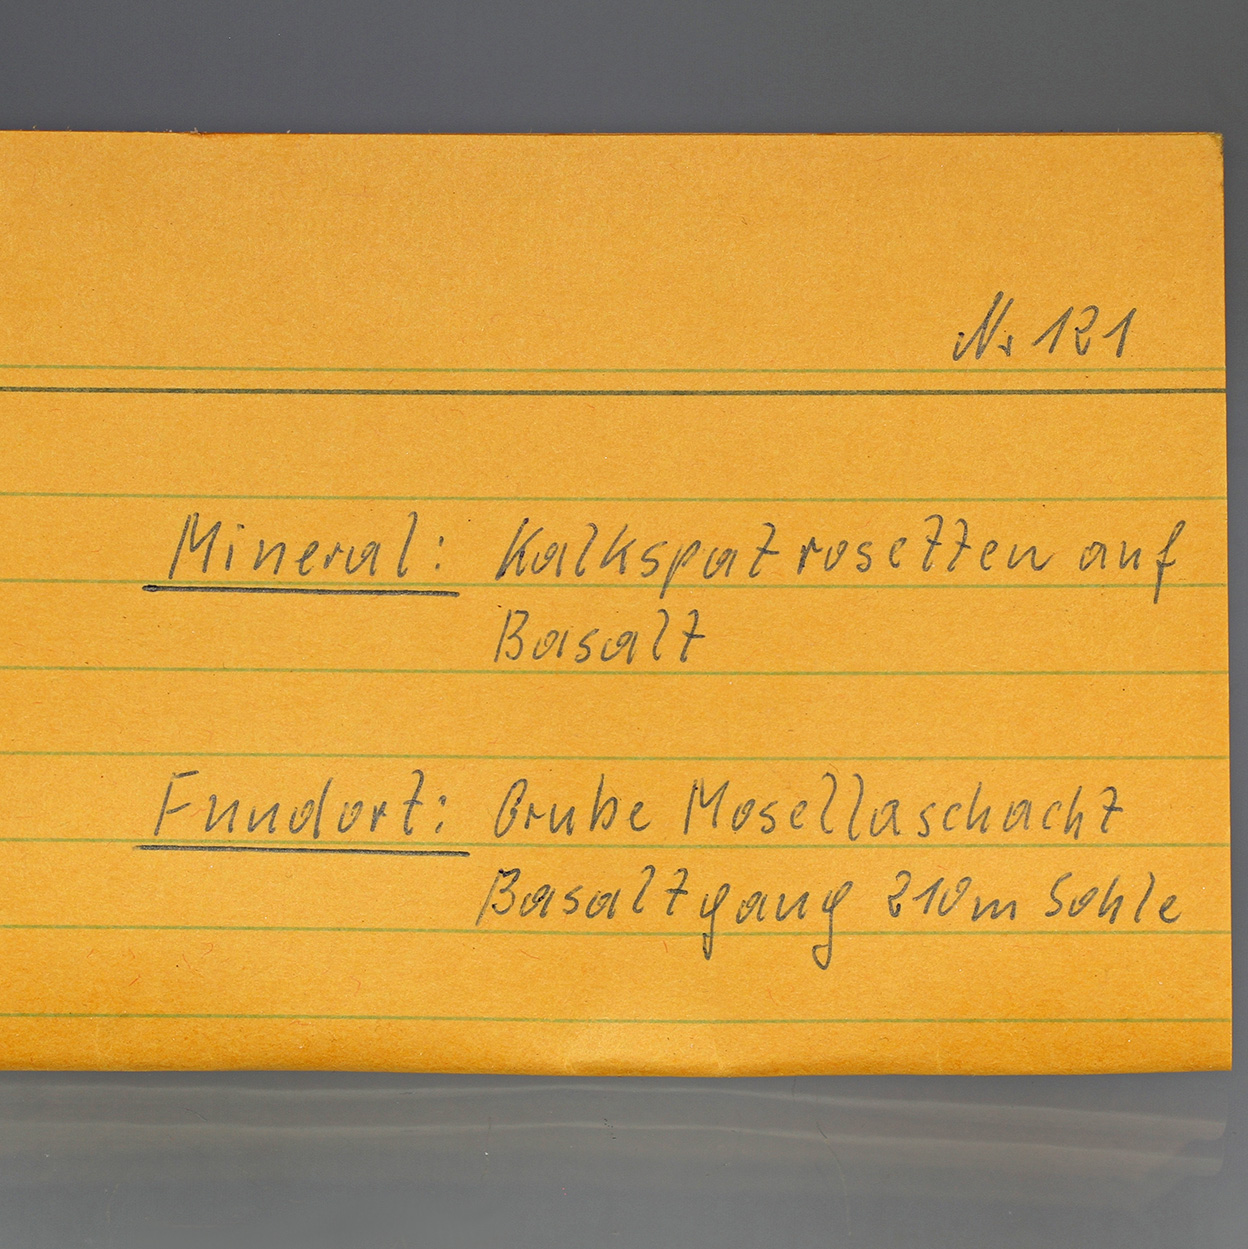 Nr 121
Mineral: Kalkspatrosetten auf
Basalt
Fundort: Grube Mosellaschacht
Basaltgang 210m Sohle